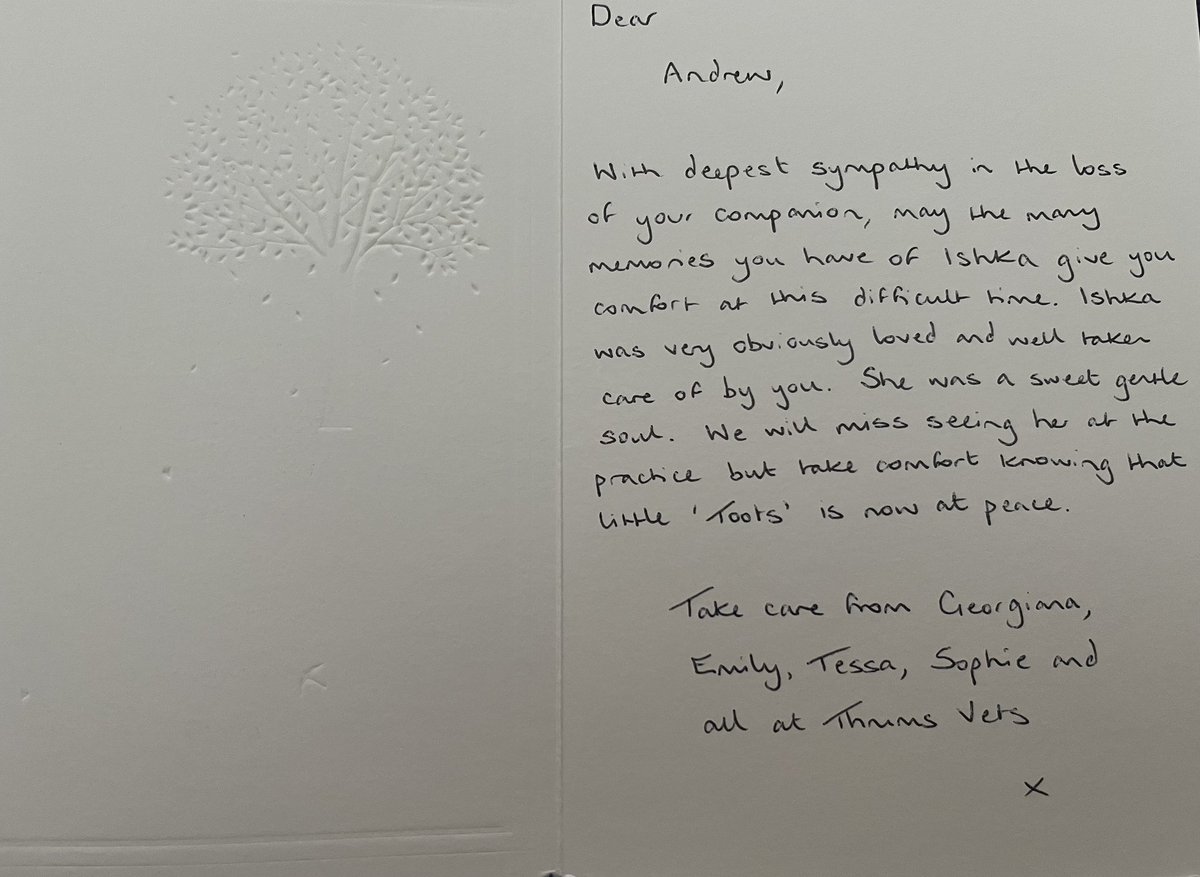 Dear
Andrew,
With deepest sympathy in the loss
of your companion, may the many
memories you have of Ishka give you
comfort at this difficult time. Ishka
was very obviously loved and well taken
care of by you. She was a sweet gentle
soul. We will miss seeing her at the
practice but take comfort knowing that
little 'Toots' is now at peace.
Take care from Georgiana,
Emily, Tessa, Sophie and
all at Thrums Vets
x